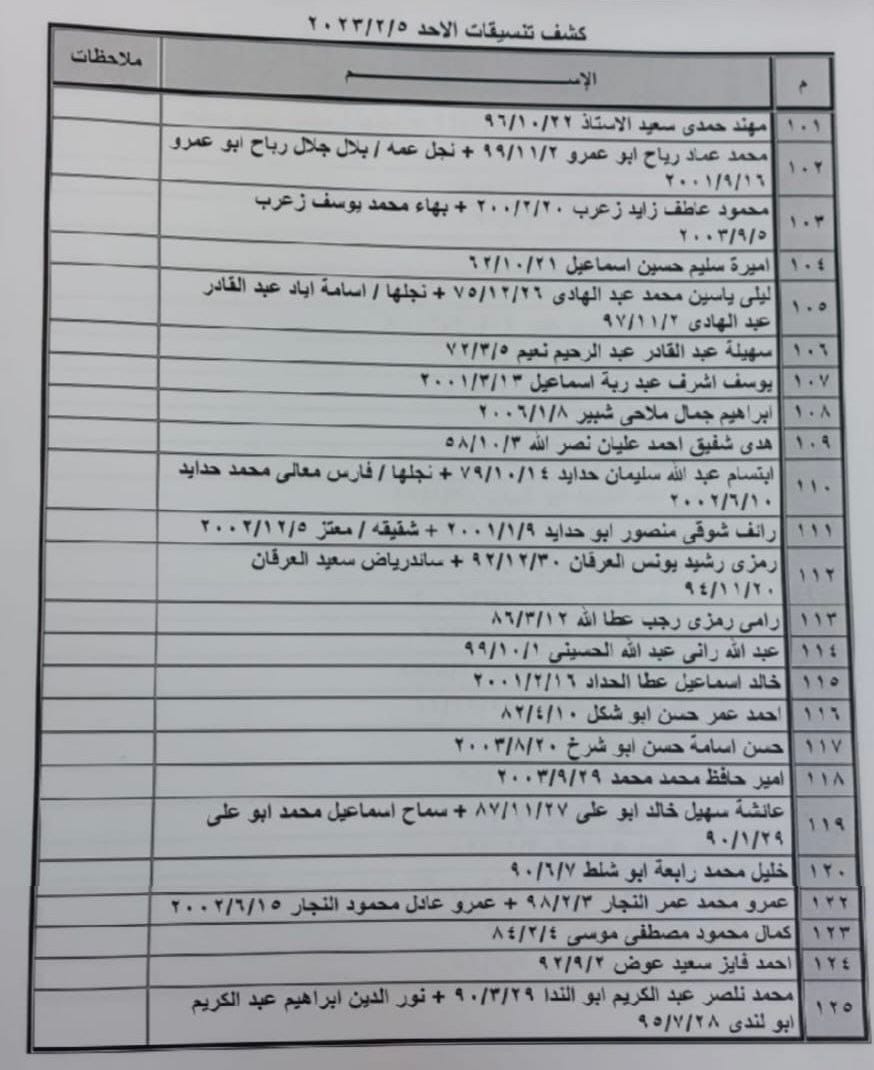 كشف تنسيقات الاحد ٢٠٢٣/٢/٥
م الإســـــــــــــــم ملاحظات
١٠١ مهند حمدى سعيد الاستاذ ٩٦/١٠/٢٢
١٠٢ محمد عماد رباح ابو عمرو ٩٩/١١/٢ + نجل عمه / بلال جلال رباح ابو عمرو
٢٠٠١/٩/١٦
١٠٣ محمود عاطف زايد زعرب ٢٠٠/٢/٢٠ + بهاء محمد يوسف زعرب
٢٠٠٣/٩/٥
١٠٤ اميرة سليم حسين اسماعيل ٦٢/١٠/٢١
١٠٥ ليلى ياسين محمد عبد الهادى ٧٥/١٢/٢٦ + نجلها / اسامة اياد عبد القادر
عبد الهادى ٩٧/١١/٢
١٠٦ سهيلة عبد القادر عبد الرحيم نعيم ٧٢/٣/٥
١٠٧ يوسف اشرف عبد ربة اسماعيل ٢٠٠١/٣/١٣
١٠٨ ابراهيم جمال ملاحى شبير ٢٠٠٦/١/٨
١٠٩ هدى شفيق احمد عليان نصر الله ٥٨/١٠/٣
١١٠ ابتسام عبد الله سليمان حدايد ٧٩/١٠/١٤ + نجلها / فارس معالى محمد حدايد
٢٠٠٢/٦/١٠
١١١ رائف شوقى منصور ابو حدايد ٢٠٠١/١/٩ + شقيقه / معتز ٢٠٠٢/١٢/٥
١١٢ رمزى رشيد يونس العرقان ٩٢/١٢/٣٠ + ساندرياض سعيد العرقان
٩٤/١١/٢٠
١١٣ رامى رمزى رجب عطا الله ٨٦/٣/١٢
١١٤ عبد الله رانى عبد الله الحسينى ٩٩/١٠/١
١١٥ خالد اسماعيل عطا الحداد ٢٠٠١/٢/١٦
١١٦ احمد عمر حسن ابو شكل ٨٢/٤/١٠
١١٧ حسن اسامة حسن ابو شرخ ٢٠٠٣/٨/٢٠
١١٨ امير حافظ محمد محمد ٢٠٠٣/٩/٢٩
١١٩ عائشة سهيل خالد ابو على ٨٧/١١/٢٧ + سماح اسماعيل محمد ابو على
٩٠/١/٢٩
١٢٠ خليل محمد رابعة ابو شلط ٩٠/٦/٧
١٢٢ عمرو محمد عمر النجار ٩٨/٢/٣ + عمرو عادل محمود النجار ٢٠٠٢/٦/١٥
١٢٣ كمال محمود مصطفى موسى ٨٤/٢/٤
١٢٤ احمد فايز سعيد عوض ٩٢/٩/٢
١٢٥ محمد نلصر عبد الكريم ابو الندا ٩٠/٣/٢٩ + نور الدين ابراهيم عبد الكريم
ابو لندى ٩٥/٧/٢٨